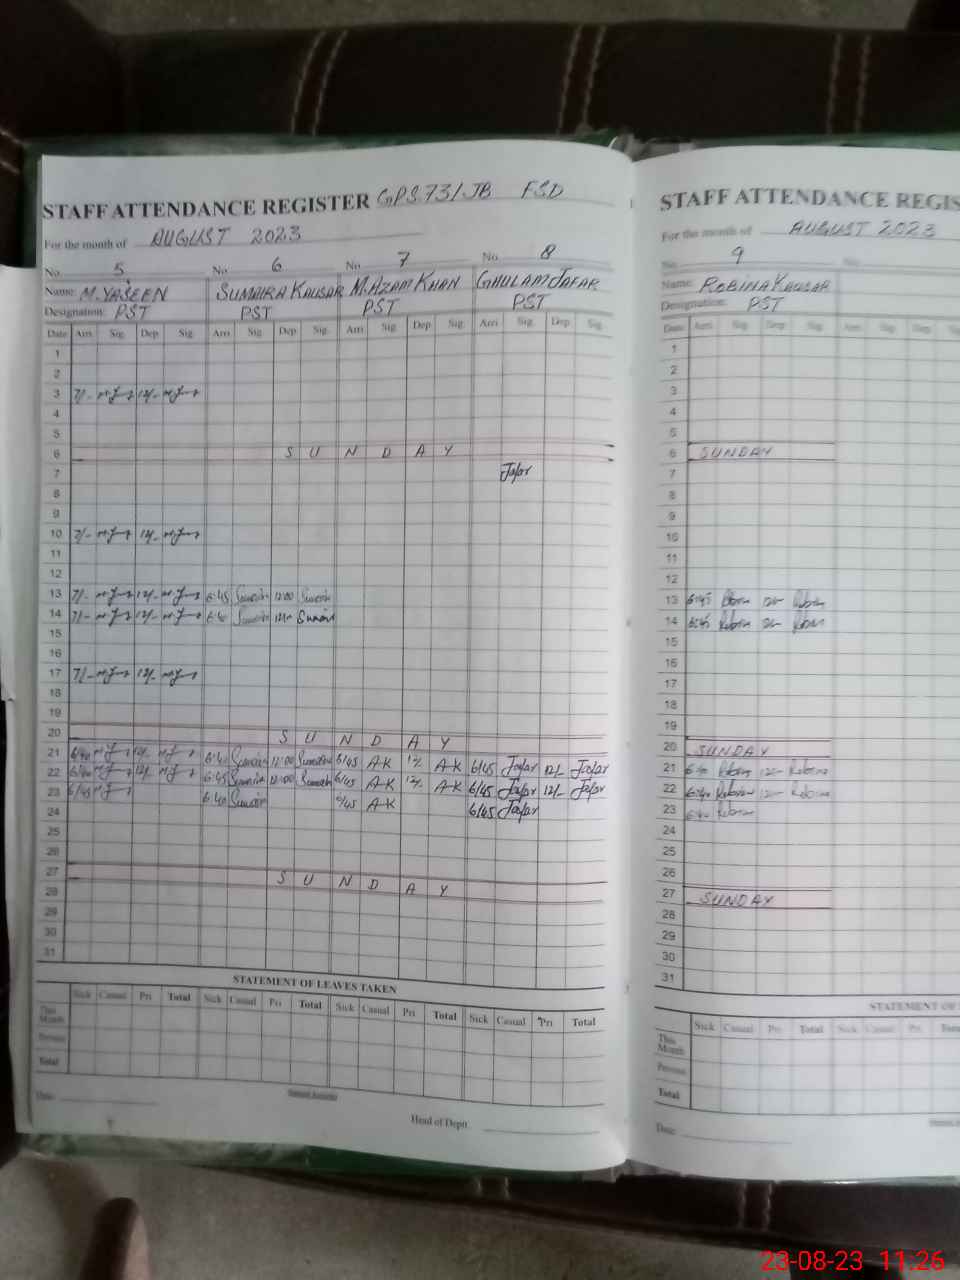 STAFF ATTENDANCE REGISTER GPS 73/JB FSD
For the month of AUGUST 2023
No. 5 No. 6 No. 7 No. 8
Name: M.YASEEN SUMAIRA KAUSAR M.AZAM KHAN GHULAM JAFAR
Designation: PST PST PST PST
Date Arri Sig. Dep Sig. Arri Sig Dep Sig. Arri Sig. Dep Sig. Arri Sig. Dep Sig.
1
2
3 7/- 12/-
4
5
6 S U N D A Y
7 Jafar
8
9
10 7/- 12/-
11
12
13 7/- 12/- 6:45 12:00
14 7/- 12/-
15
16
17 7/- 12/-
18
19
20 S U N D A Y
21 6/40 12/- 6:40 12:00 6/45 A-K 12/- A-K 6/45 Jafar 12/- Jafar
22 6/40 12/- 6:45 12:00 6/45 A-K 12/- A-K 6/45 Jafar 12/- Jafar
23 6/45 6:40 6/45 A-K 6/45 Jafar
24
25
26
27 S U N D A Y
28
29
30
31
STATEMENT OF LEAVES TAKEN
Sick Casual Pri Total Sick Casual Pri Total Sick Casual Pri Total Sick Casual Pri Total
This Month
Previous
Total
Date
Head of Deptt.
STAFF ATTENDANCE REGIS
For the month of AUGUST 2023
No. 9 No.
Name: ROBINA KAUSAR
Designation: PST
Date Arri Sig. Dep Sig. Arri Sig. Dep
1
2
3
4
5
6 SUNDAY
7
8
9
10
11
12
13 6:45
14 6:45
15
16
17
18
19
20 SUNDAY
21 6:40 Robina
22 6:40 Robina
23 6:40 Robina
24
25
26
27 SUNDAY
28
29
30
31
STATEMENT OF
Sick Casual Pri Total Sick Casual Pri
This Month
Previous
Total
Date
23-08-23 11:26